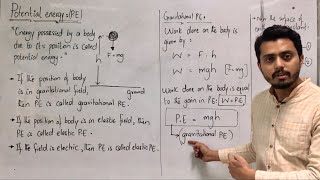 Potential energy:(PE)
*Energy possessed by a body
due to its position is called
potential energy.
F=mg
h
ground
* If the position of body
is in gravitational field,
then PE is called gravitational PE.
* If the position of body is in elastic field, then
PE is called elastic PE.
* If the field is electric, then PE is called electric PE.
Gravitational PE:
Work done on the body is
given by:
W = F.h
W = mgh [F=mg]
Work done on the body is equal
to the gain in PE: W=PE
P.E = mgh
(gravitational PE)
the surface of